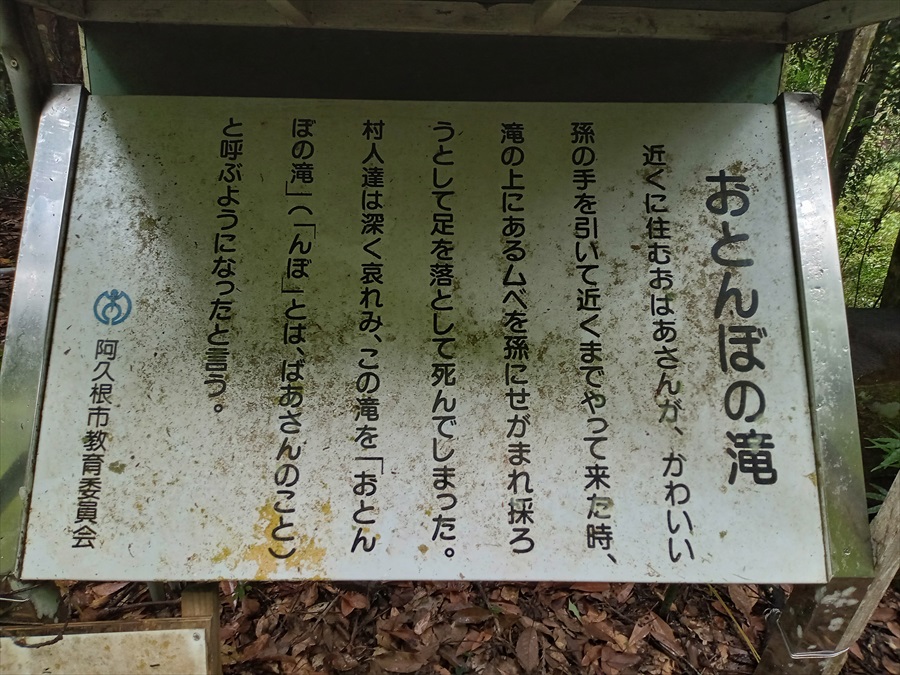 おとんぼの滝
近くに住むおばあさんが、かわいい
孫の手を引いて近くまでやって来た時、
滝の上にあるムベを孫にせがまれ採ろ
うとして足を落として死んでしまった。
村人達は深く哀れみ、この滝を「おとん
ぼの滝」(「んぼ」とは、ばあさんのこと)
と呼ぶようになったと言う。
阿久根市教育委員会